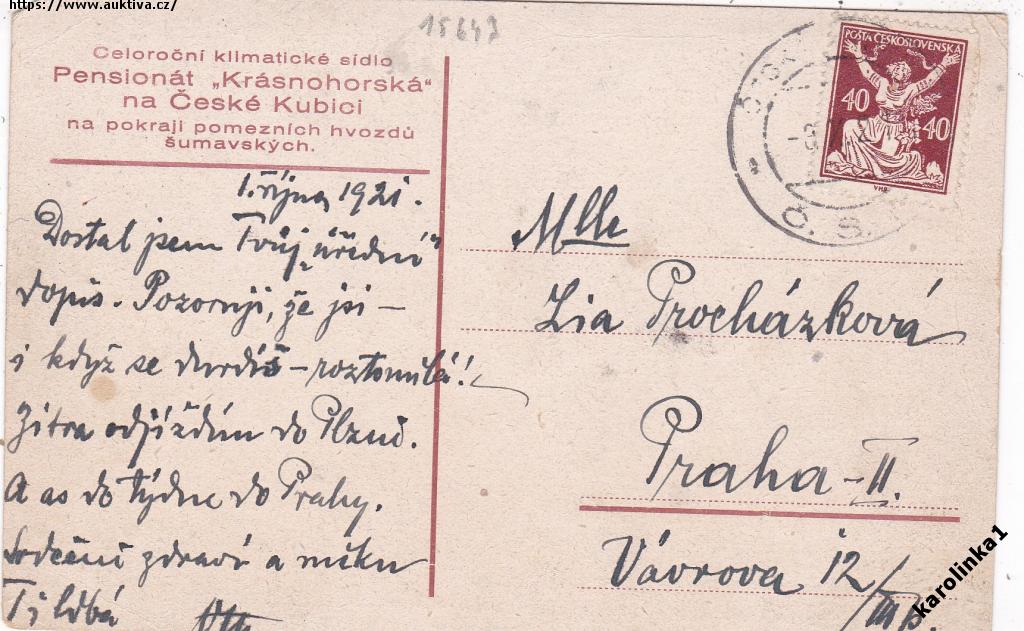 https://www.auktiva.cz/
15647
Celoroční klimatické sídlo
Pensionát „Krásnohorská“
na České Kubici
na pokraji pomezních hvozdů
šumavských.
1. října 1921.
Dostal jsem Tvůj „úřední“
dopis. Pozoruji, že jsi –
i když se durdíš – roztomilá!
Zítra odjíždím do Plzně.
A as do týdne do Prahy.
Srdečně zdraví a
Ti
POŠTA ČESKOSLOVENSKA
40 40
Č. S.
Mlle
Lia Procházková
Praha – II.
Vávrova 12
karolinka1